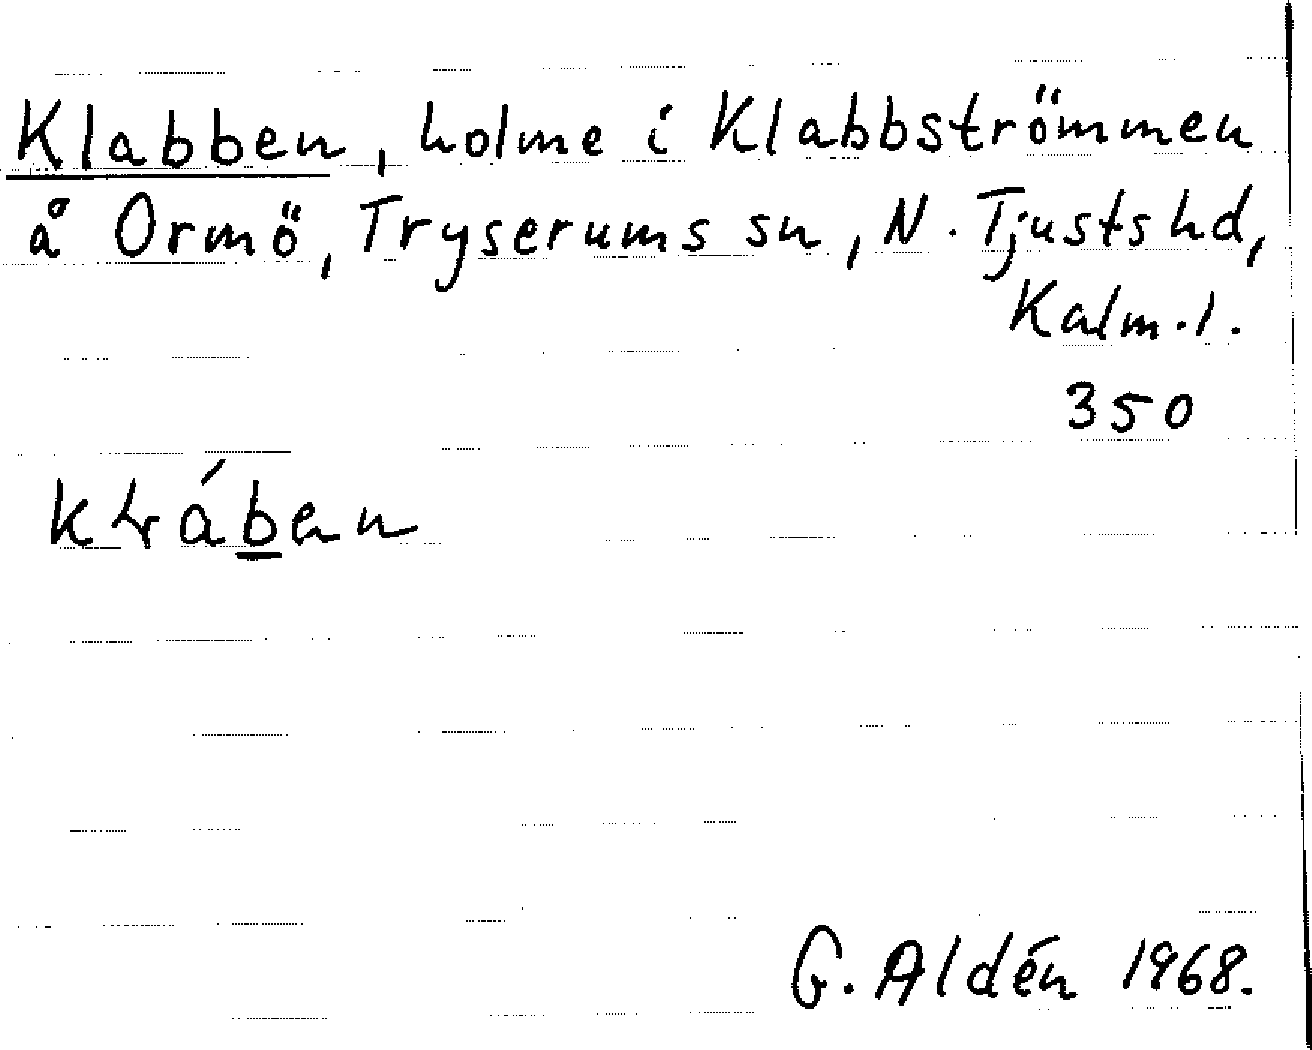 Klabben, holme i Klabbströmmen
å Ormö, Tryserums sn, N. Tjusts hd,
Kalm. l.
350
G. Aldén 1968.